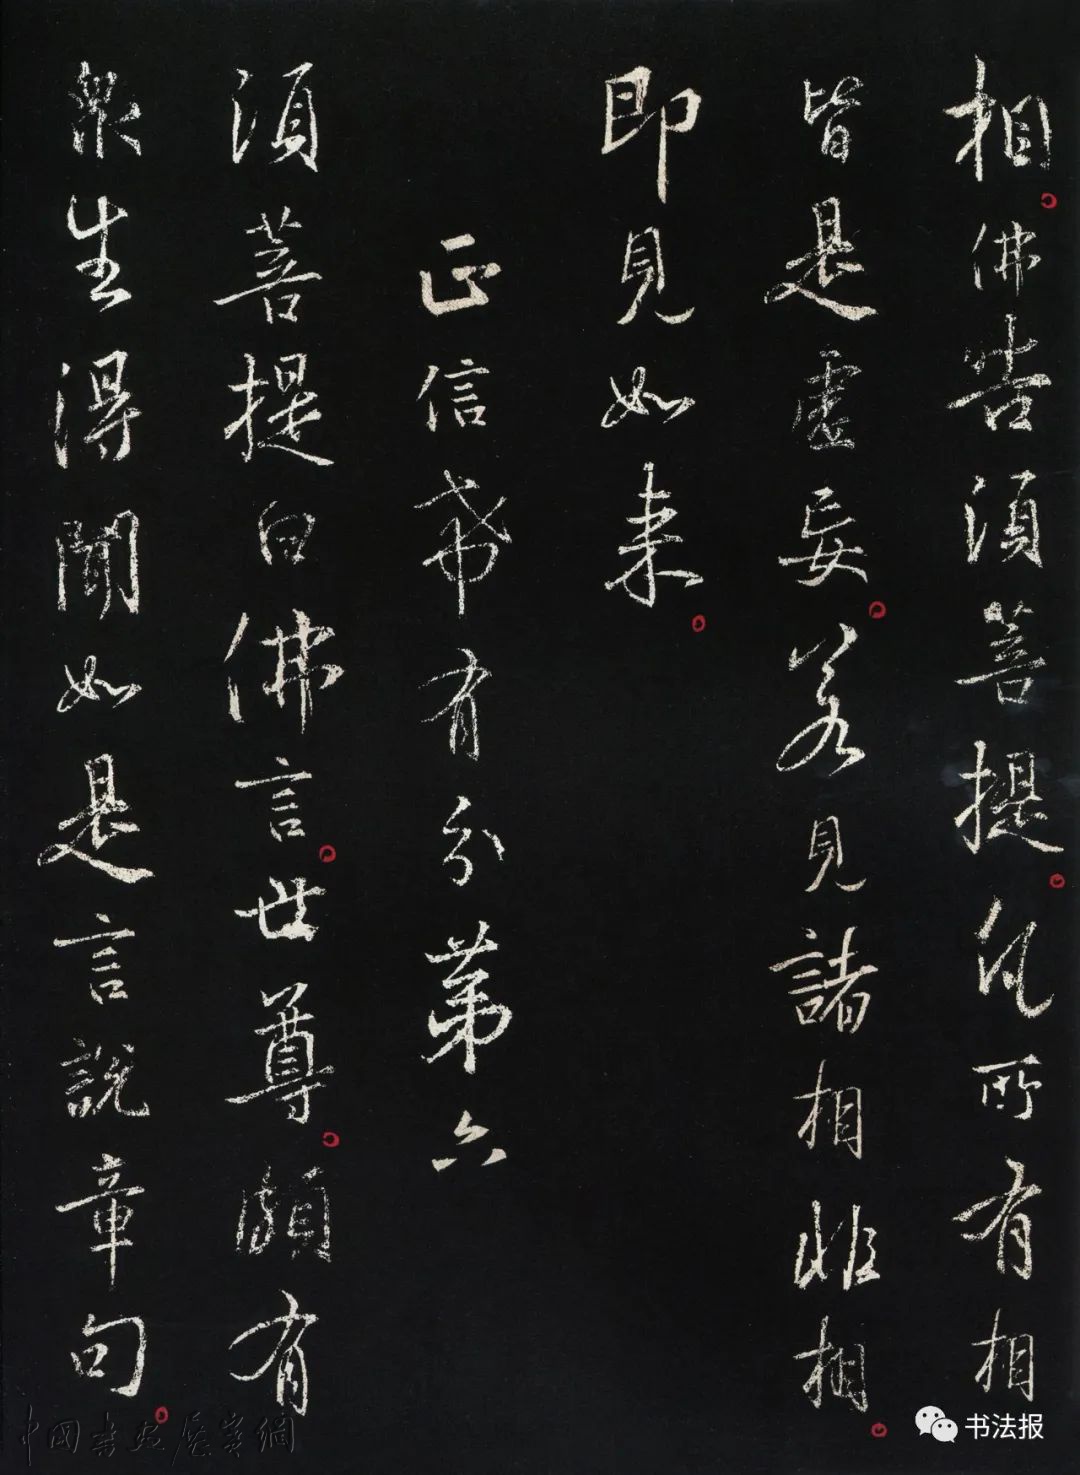 相。佛告須菩提。凡所有相
皆是虛妄。若見諸相非相。
即見如来。
正信希有分第六
須菩提白佛言。世尊。頗有
衆生得聞如是言說章句。
中國書畫展賽網
书法报